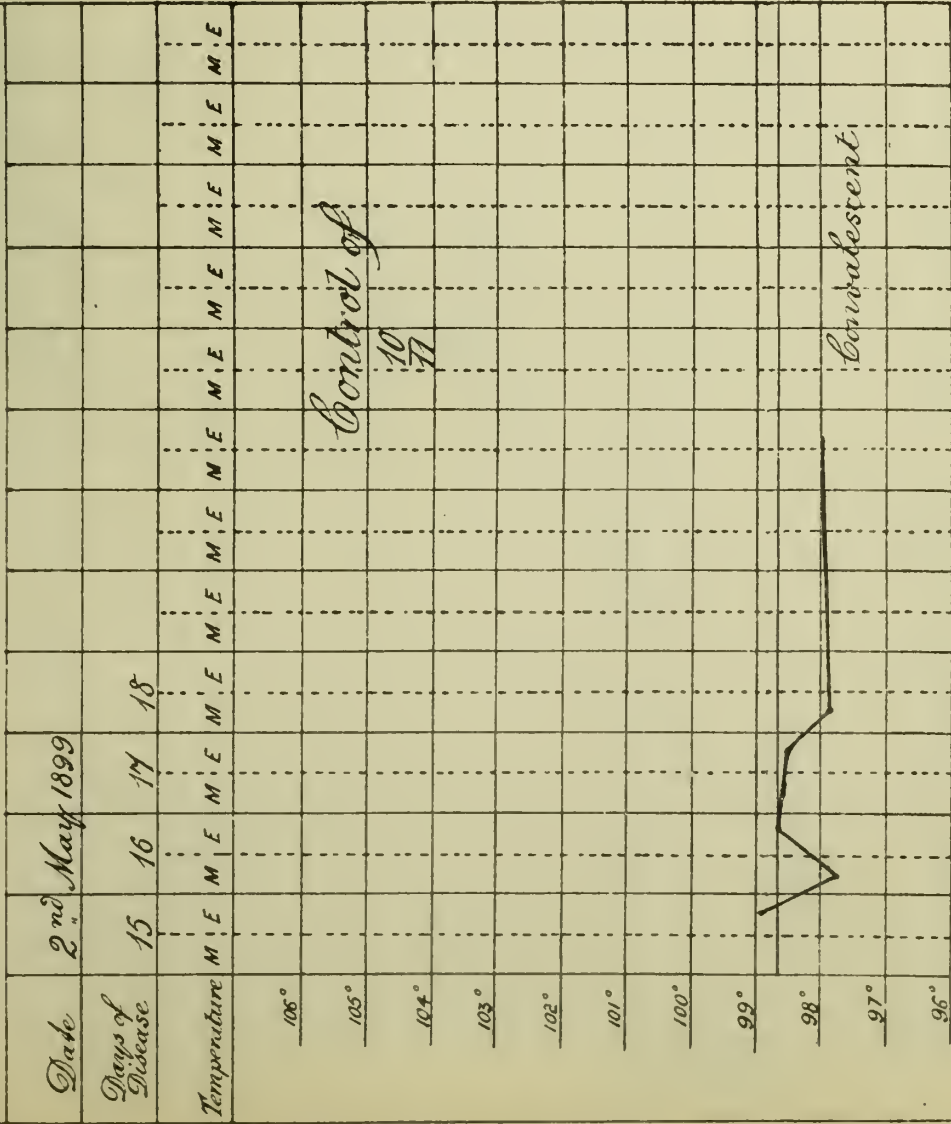 Date 2nd May 1899
Days of Disease 15 16 17 18
Temperature M E M E M E M E M E M E M E M E M E M E M E M E
106°
105°
104°
103°
102°
101°
100°
99°
98°
97°
96°
Control of
10
11
Convalescent